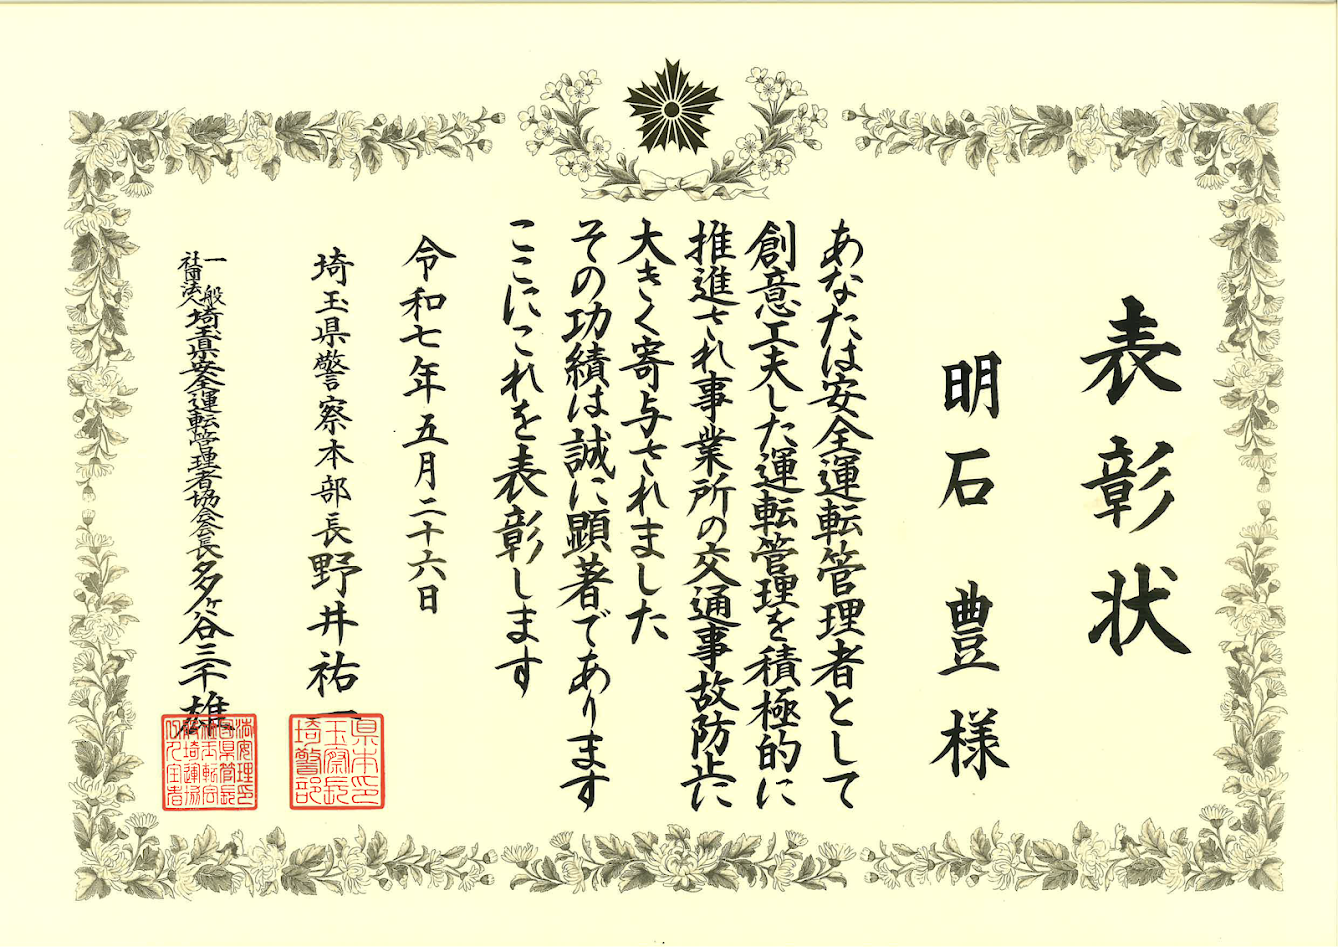 表彰状
明石 豊 様
あなたは安全運転管理者として
創意工夫した運転管理を積極的に
推進され事業所の交通事故防止に
大きく寄与されました
その功績は誠に顕著であります
ここにこれを表彰します
令和七年五月二十六日
埼玉県警察本部長 野井祐一
一般社団法人 埼玉県安全運転管理者協会会長 多ヶ谷三千雄
埼玉県警察本部長印